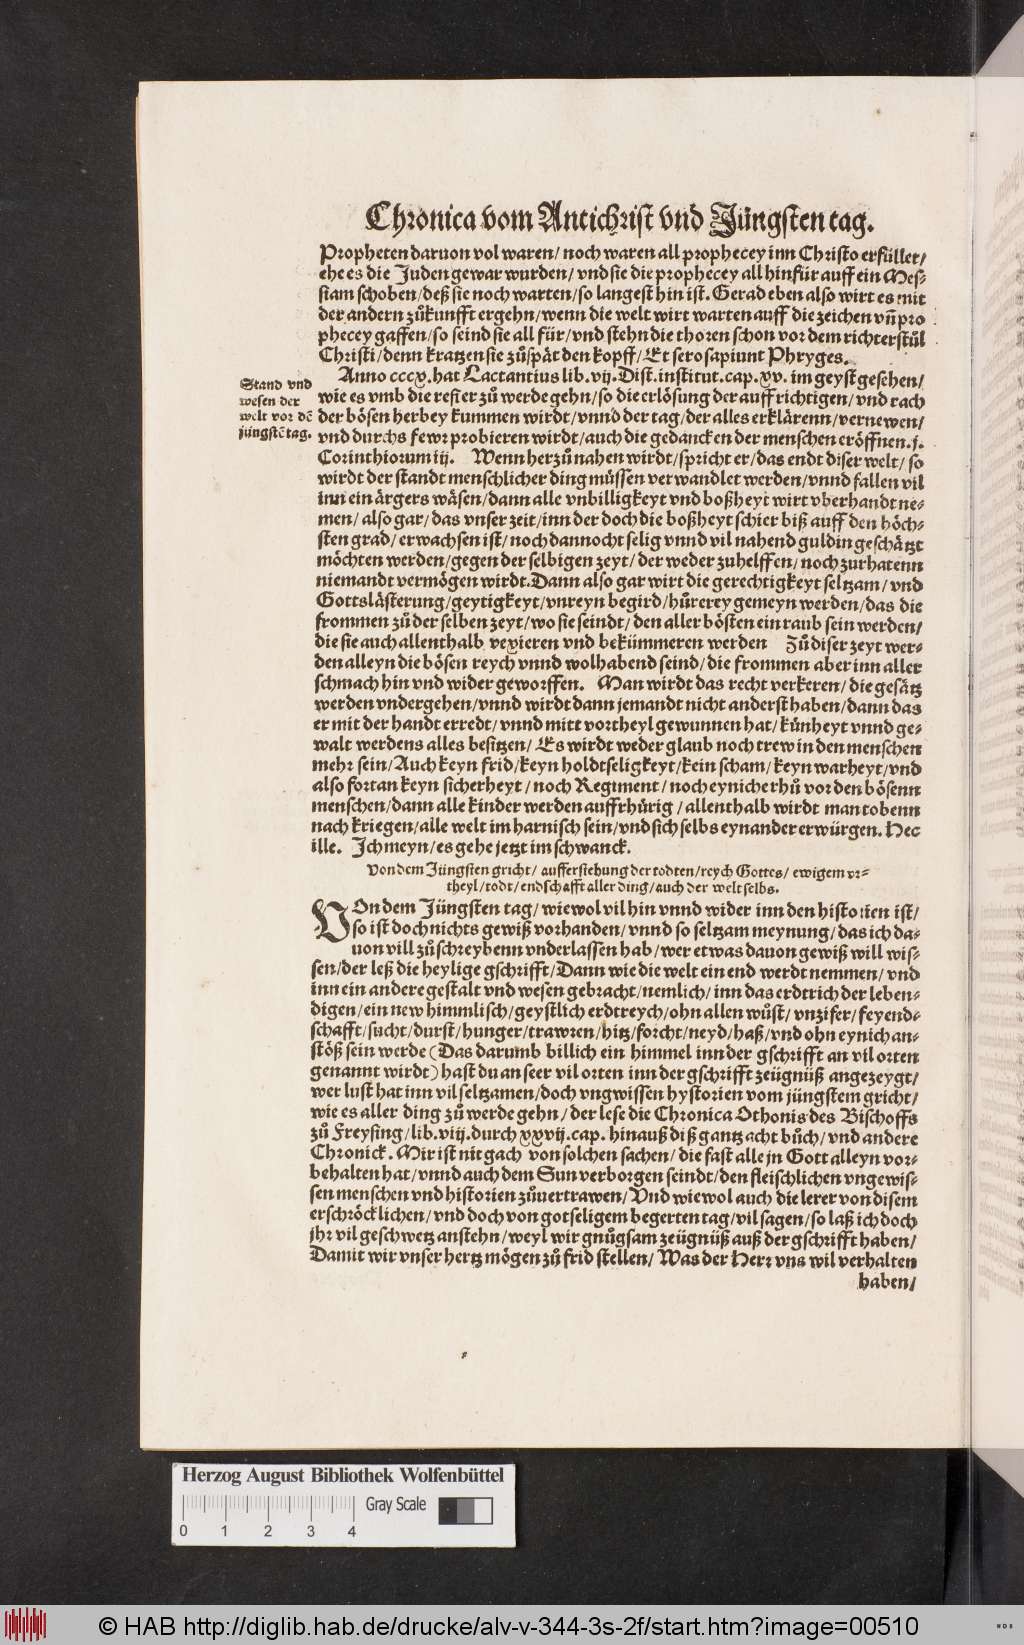 Chronica vom Antichrist vnd Jüngsten tag.
Propheten daruon vol waren/ noch waren all prophecey inn Christo erfüllet/
ehe es die Juden gewar wurden/ vnd sie die prophecey all hinfür auff ein Mes⸗
siam schoben/ deß sie noch warten/ so langest hin ist. Gerad eben also wirt es mit
der andern zůkunfft ergehn/ wenn die welt wirt warten auff die zeichen vñ pro
phecey gaffen/ so seind sie all für/ vnd stehn die thoren schon vor dem richterstůl
Christi/ denn kratzen sie zůspät den kopff/ Et sero sapiunt Phryges.
Stand vnd
wesen der
welt vor dẽ
jüngstẽ tag.
Anno cccx. hat Lactantius lib. vij. Dist. institut. cap. xv. im geyst gesehen/
wie es vmb die rester zů werde gehn/ so die erlösung der auffrichtigen/ vnd rach
der bösen herbey kummen wirdt/ vnnd der tag/ der alles erklärenn/ vernewen/
vnd durchs fewr probieren wirdt/ auch die gedancken der menschen eröffnen. j.
Corinthiorum iij. Wenn herzů nahen wirdt/ spricht er/ das endt diser welt/ so
wirdt der standt menschlicher ding müssen verwandlet werden/ vnnd fallen vil
inn ein ärgers wäsen/ dann alle vnbilligkeyt vnd boßheyt wirt vberhandt ne⸗
men/ also gar/ das vnser zeit/ inn der doch die boßheyt schier biß auff den höch⸗
sten grad/ erwachsen ist/ noch dannocht selig vnnd vil nahend guldin geschätzt
möchten werden/ gegen der selbigen zeyt/ der weder zuhelffen/ noch zurhatenn
niemandt vermögen wirdt. Dann also gar wirt die gerechtigkeyt seltzam/ vnd
Gottslästerung/ geytigkeyt/ vnreyn begird/ hůrerey gemeyn werden/ das die
frommen zů der selben zeyt/ wo sie seindt/ den aller bösten ein raub sein werden/
die sie auch allenthalb vexieren vnd bekümmeren werden Zů diser zeyt wer⸗
den alleyn die bösen reych vnnd wolhabend seind/ die frommen aber inn aller
schmach hin vnd wider geworffen. Man wirdt das recht verkeren/ die gesätz
werden vndergehen/ vnnd wirdt dann jemandt nicht anderst haben/ dann das
er mit der handt erredt/ vnnd mitt vortheyl gewunnen hat/ künheyt vnnd ge⸗
walt werdens alles besitzen/ Es wirdt weder glaub noch trew in den menschen
mehr sein/ Auch keyn frid/ keyn holdtseligkeyt/ kein scham/ keyn warheyt/ vnd
also fortan keyn sicherheyt/ noch Regiment/ noch eyniche rhů vor den bösenn
menschen/ dann alle kinder werden auffrhürig/ allenthalb wirdt man tobenn
nach kriegen/ alle welt im harnisch sein/ vnd sich selbs eynander erwürgen. Hec
ille. Ich meyn/ es gehe jetzt im schwanck.
Von dem Jüngsten gricht/ aufferstehung der todten/ reych Gottes/ ewigem vr⸗
theyl/ todt/ endschafft aller ding/ auch der welt selbs.
VOn dem Jüngsten tag/ wiewol vil hin vnnd wider inn den historien ist/
so ist doch nichts gewiß vorhanden/ vnnd so seltzam meynung/ das ich da⸗
uon vill zů schreybenn vnderlassen hab/ wer etwas dauon gewiß will wis⸗
sen/ der leß die heylige gschrifft/ Dann wie die welt ein end werdt nemmen/ vnd
inn ein andere gestalt vnd wesen gebracht/ nemlich/ inn das erdtrich der leben⸗
digen/ ein new himmlisch/ geystlich erdtreych/ ohn allen wůst/ vnzifer/ feyend⸗
schafft/ sucht/ durst/ hunger/ trawren/ hitz/ forcht/ neyd/ haß/ vnd ohn eynich an⸗
stöß sein werde (Das darumb billich ein himmel inn der gschrifft an vil orten
genannt wirdt) hast du an seer vil orten inn der gschrifft zeügnüß angezeygt/
wer lust hat inn vil seltzamen/ doch vngwissen hystorien vom jüngstem gricht/
wie es aller ding zů werde gehn/ der lese die Chronica Othonis des Bischoffs
zů Freysing/ lib. viij. durch xxvij. cap. hinauß diß gantz acht bůch/ vnd andere
Chronick. Mir ist nit gach von solchen sachen/ die fast alle jn Gott alleyn vor⸗
behalten hat/ vnnd auch dem Sun verborgen seindt/ den fleischlichen vngewis⸗
sen menschen vnd historien zůuertrawen/ Vnd wiewol auch die lerer von disem
erschröcklichen/ vnd doch von gotseligem begerten tag/ vil sagen/ so laß ich doch
jhr vil geschwetz anstehn/ weyl wir gnůgsam zeügnüß auß der gschrifft haben/
Damit wir vnser hertz mögen zů frid stellen/ Was der Herr vns wil verhalten
haben/
Herzog August Bibliothek Wolfenbüttel
Gray Scale
0 1 2 3 4
© HAB http://diglib.hab.de/drucke/alv-v-344-3s-2f/start.htm?image=00510